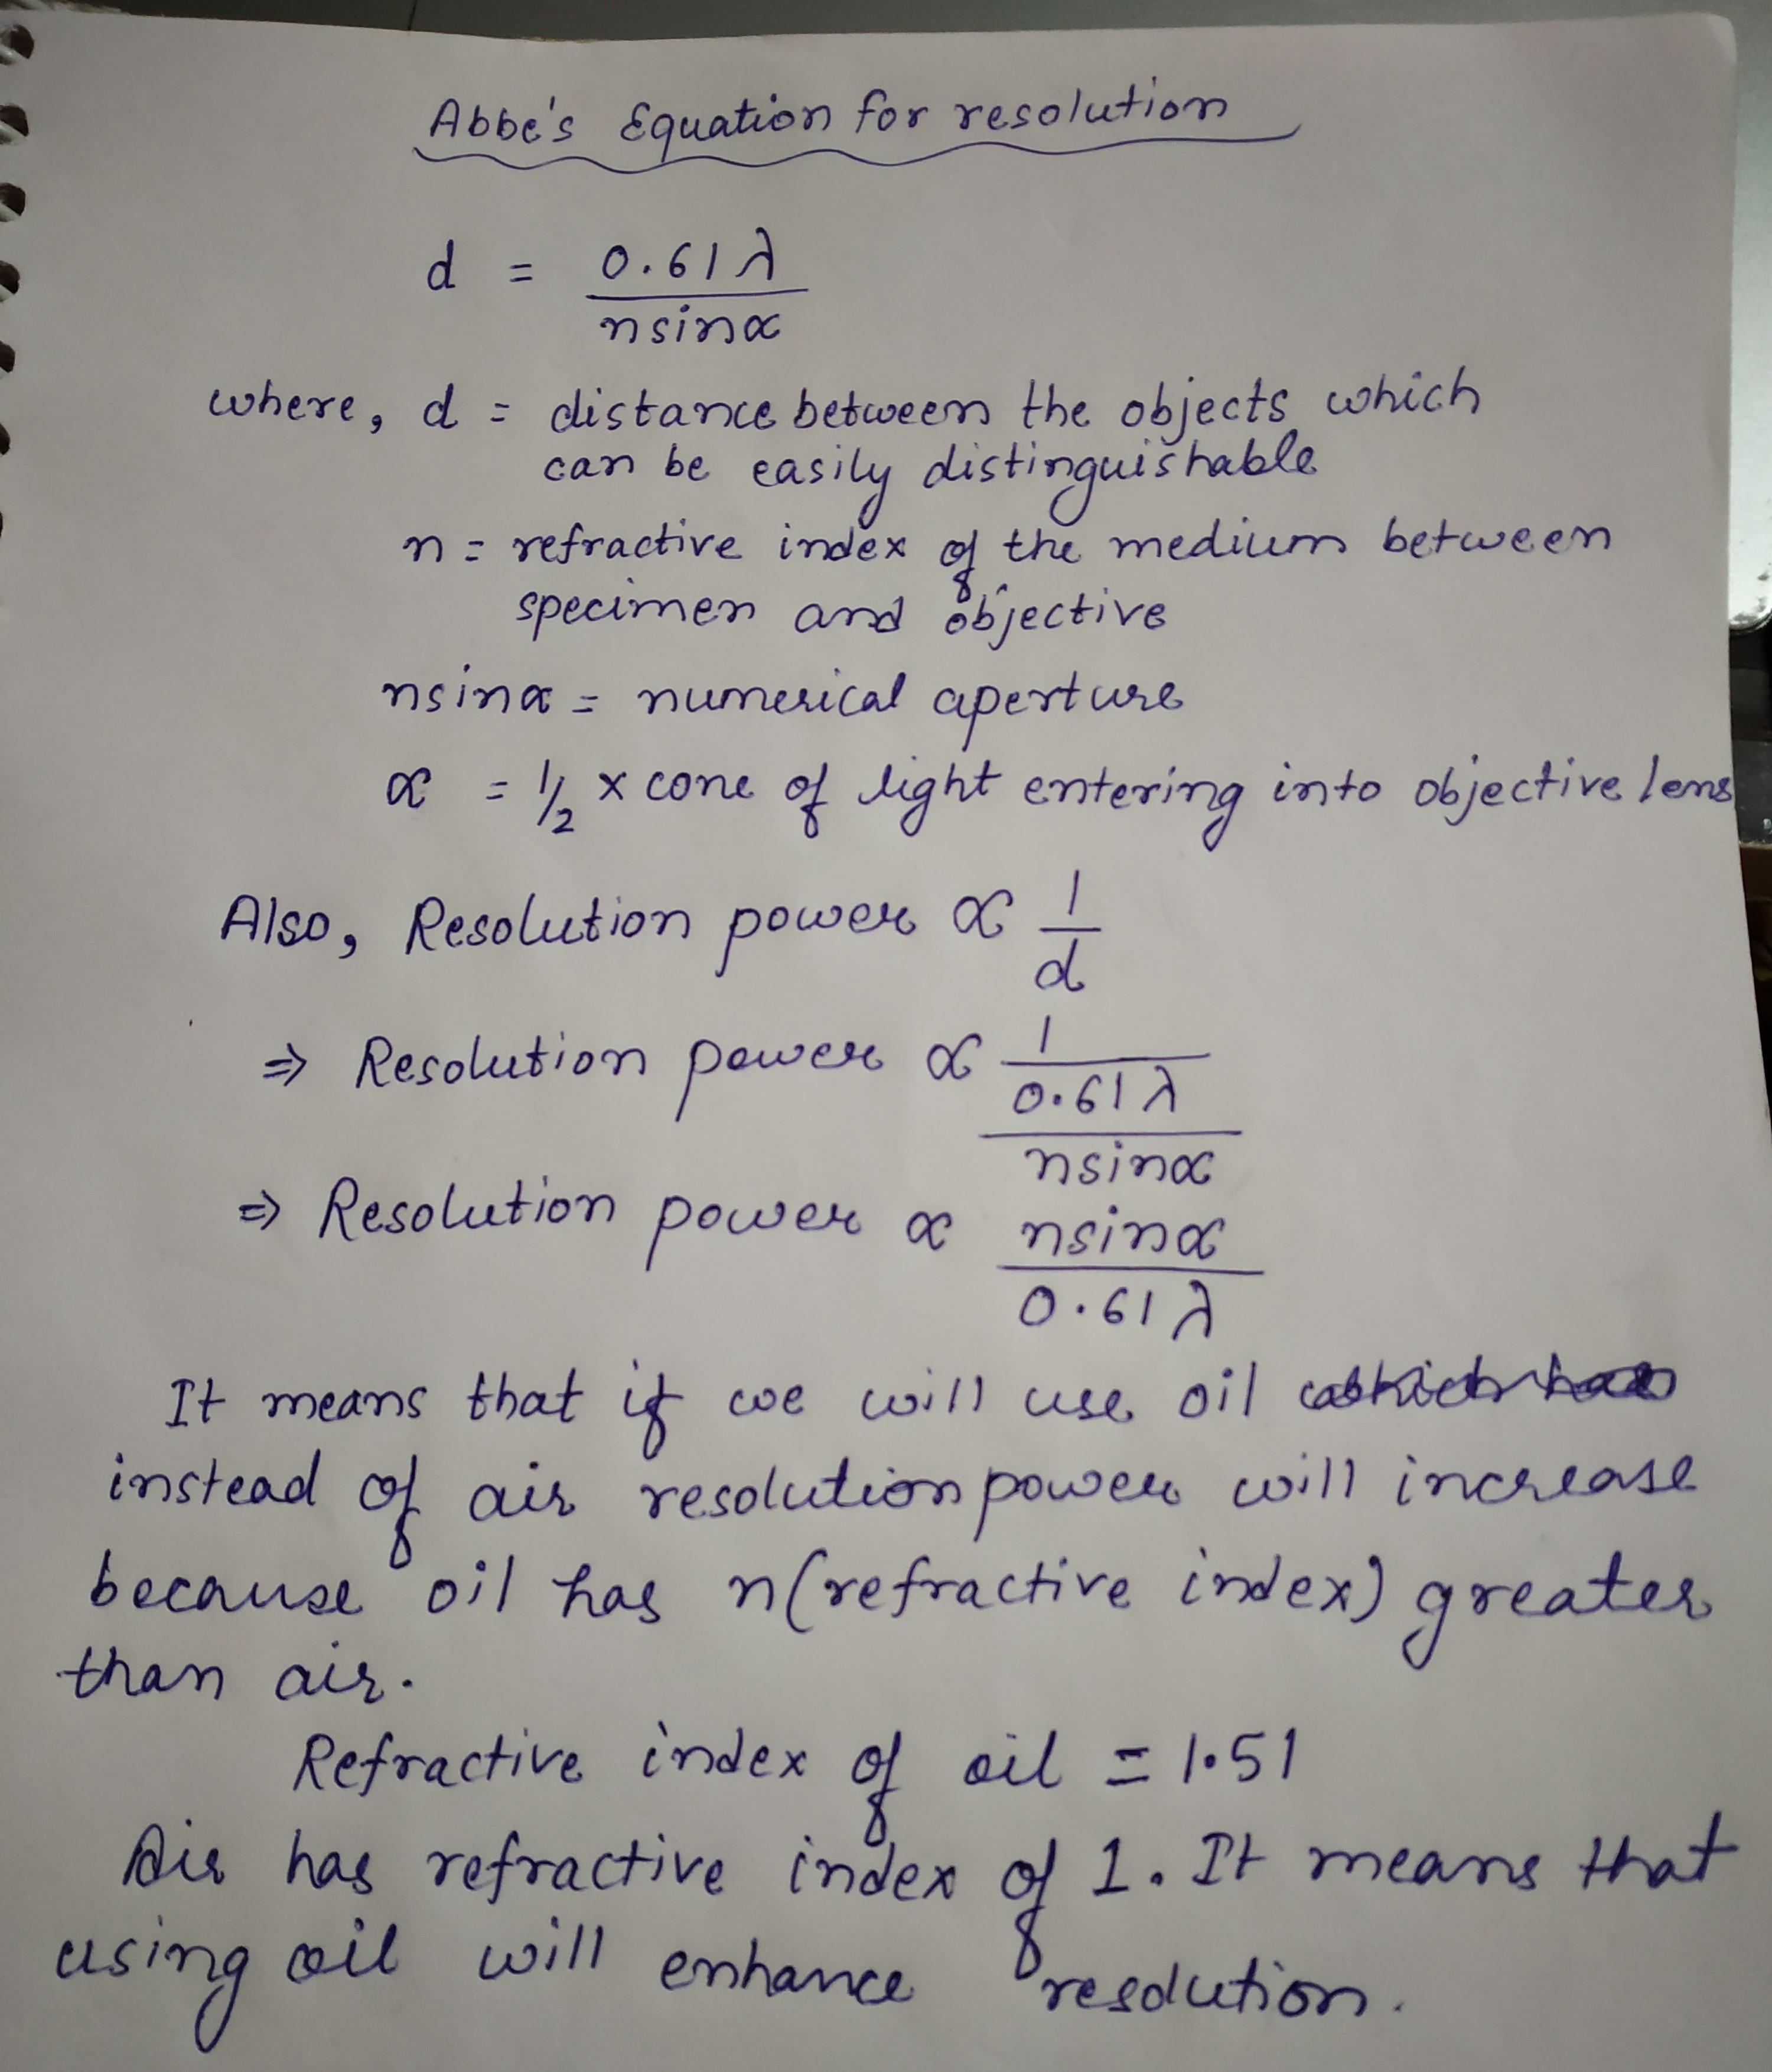 Abbe's Equation for resolution
d = 0.61λ / nsinα
where, d = distance between the objects which
can be easily distinguishable
n = refractive index of the medium between
specimen and objective
nsinα = numerical aperture
α = 1/2 × cone of light entering into objective lens
Also, Resolution power ∝ 1/d
⇒ Resolution power ∝ 1 / (0.61λ / nsinα)
⇒ Resolution power ∝ nsinα / 0.61λ
It means that if we will use oil
instead of air resolution power will increase
because oil has n (refractive index) greater
than air.
Refractive index of oil = 1.51
Air has refractive index of 1. It means that
using oil will enhance resolution.